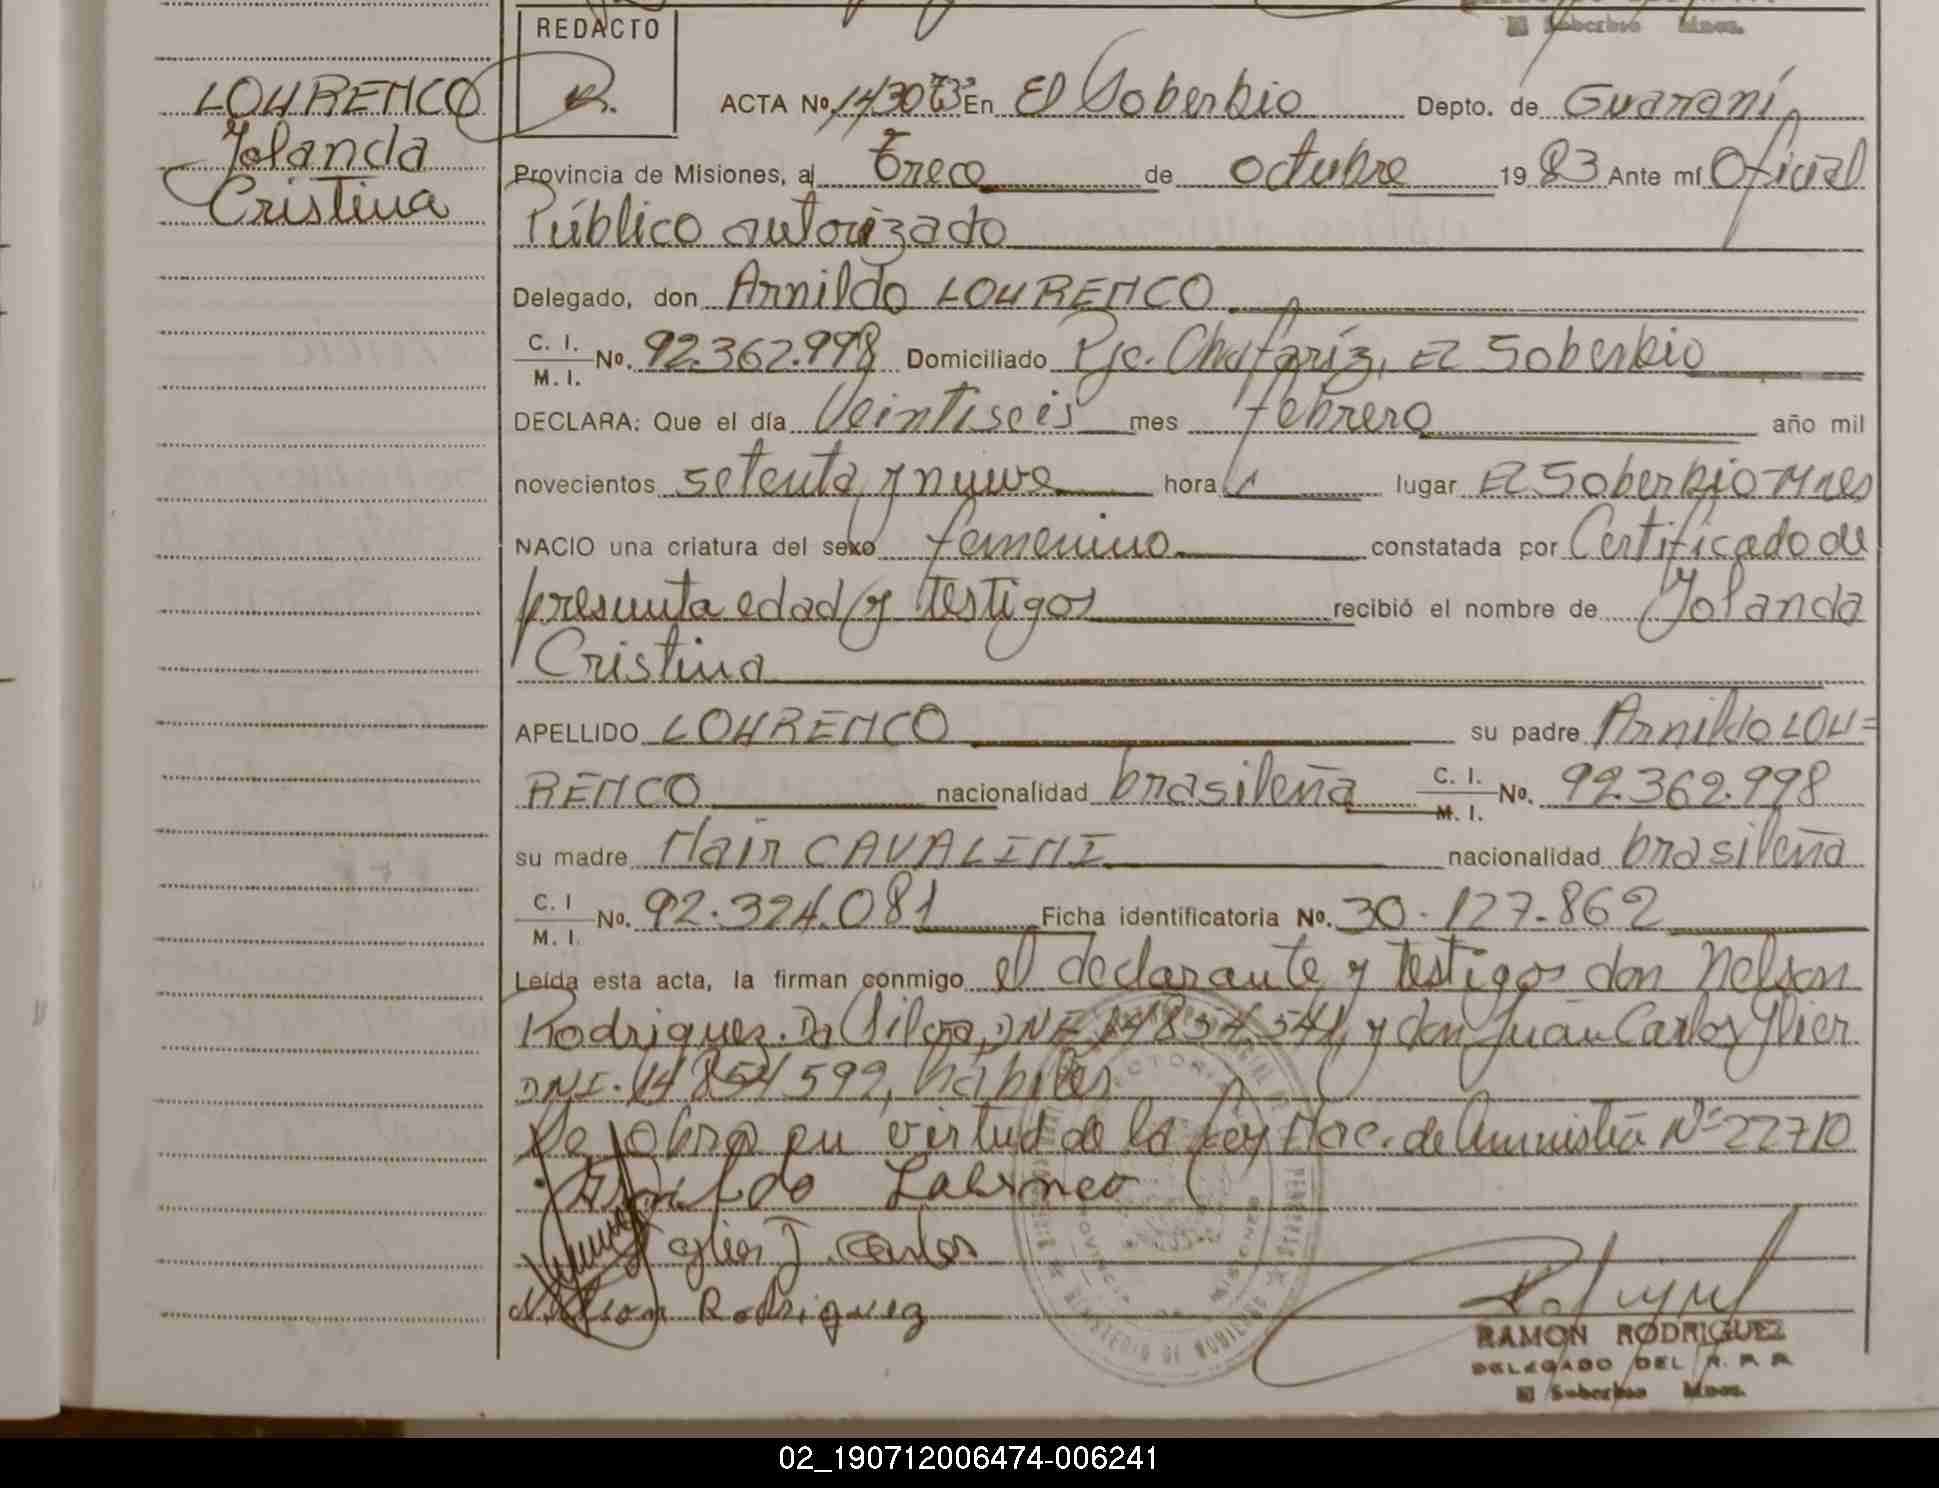 REDACTO
LOURENCO
Yolanda
Cristina
ACTA Nº En El Soberbio Depto. de Guaraní
Provincia de Misiones, a Trece de octubre 1983 Ante mí Oficial
Público autorizado
Delegado, don Arnildo LOURENCO
C. I. M. I. Nº. 92.362.998 Domiciliado Pje. Chafariz, El Soberbio
DECLARA: Que el día Veintiseis mes febrero año mil
novecientos setenta y nueve hora 1 lugar El Soberbio-Mnes
NACIO una criatura del sexo femenino constatada por Certificado de
presunta edad y testigos recibió el nombre de Yolanda
Cristina
APELLIDO LOURENCO su padre Arnildo LOU=
RENCO nacionalidad brasileña C. I. M. I. Nº. 92.362.998
su madre Nair CAVALINI nacionalidad brasileña
C. I M. I. Nº. 92.324.081 Ficha identificatoria Nº. 30.127.862
Leída esta acta, la firman conmigo el declarante y testigos don Nelson
Rodriguez Da Silva, DNI 14 854.541, y don Juan Carlos Glier
DNI. 14 854 599, hábiles
Se labra en virtud de la Ley Nac. de Amnistía Nº 22710
Arnildo
Glier J. Carlos
Nelson Rodriguez
RAMON RODRIGUEZ
DELEGADO DEL R. P. P.
El Soberbio Mnes.
02_190712006474-006241